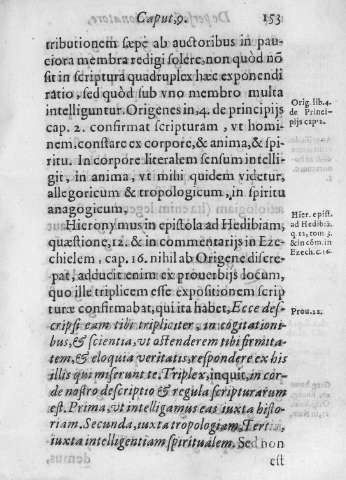 Caput, 9. 153
tributionem sæpe ab auctoribus in pau-
ciora membra redigi solere, non quòd nō
sit in scriptura quadruplex hæc exponendi
ratio, sed quòd sub vno membro multa
intelliguntur. Origenes in, 4. de principijs
cap. 2. confirmat scripturam, vt homi-
nem. constare ex corpore, & anima, & spi-
ritu. In corpore literalem sensum intelli-
git, in anima, vt mihi quidem videtur,
allegoricum & tropologicum, in spiritu
anagogicum,
Orig. lib. 4.
de Princi-
pijs cap 2.
Hieronymus in epistola ad Hedibiam,
quæstione, 12. & in commentarijs in Eze-
chielem, cap, 16. nihil ab Origene discre-
pat, adducit enim ex prouerbijs locum,
quo ille triplicem esse expositionem scrip
turæ confirmabat, qui ita habet, Ecce des-
cripsi eam tibi tripliciter, in cogitationi-
bus, & scientia, vt ostenderem tibi firmita-
tem, & eloquia veritatis, respondere ex his
illis qui miserunt te. Triplex, inquit, in cor-
de nostro descriptio & regula scripturarum
est. Prima, vt intelligamus eas iuxta histo-
riam. Secunda, iuxta tropologiam, Tertia,
iuxta intelligentiam spiritualem. Sed non
est
Hier. epist.
ad Hedibiā.
q. 12, tom 3.
& in cōm. in
Ezech. c. 16.
Prou. 22.